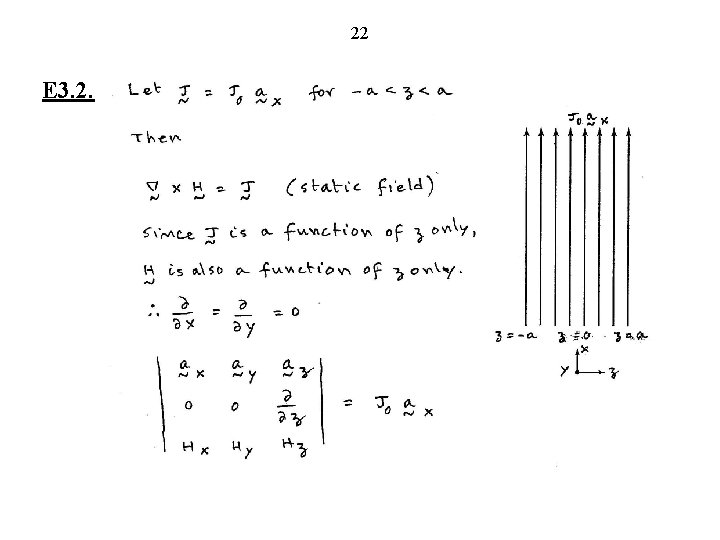 22
E3.2. Let J = J₀ a x for -a < z < a
Then
∇ x H = J (static field)
Since J is a function of z only,
H is also a function of z only.
∴ ∂/∂x = ∂/∂y = 0
| a x a y a z |
| 0 0 ∂/∂z | = J₀ a x
| H x H y H z |
J₀ a x
z = -a z = 0 z = a
x
y z